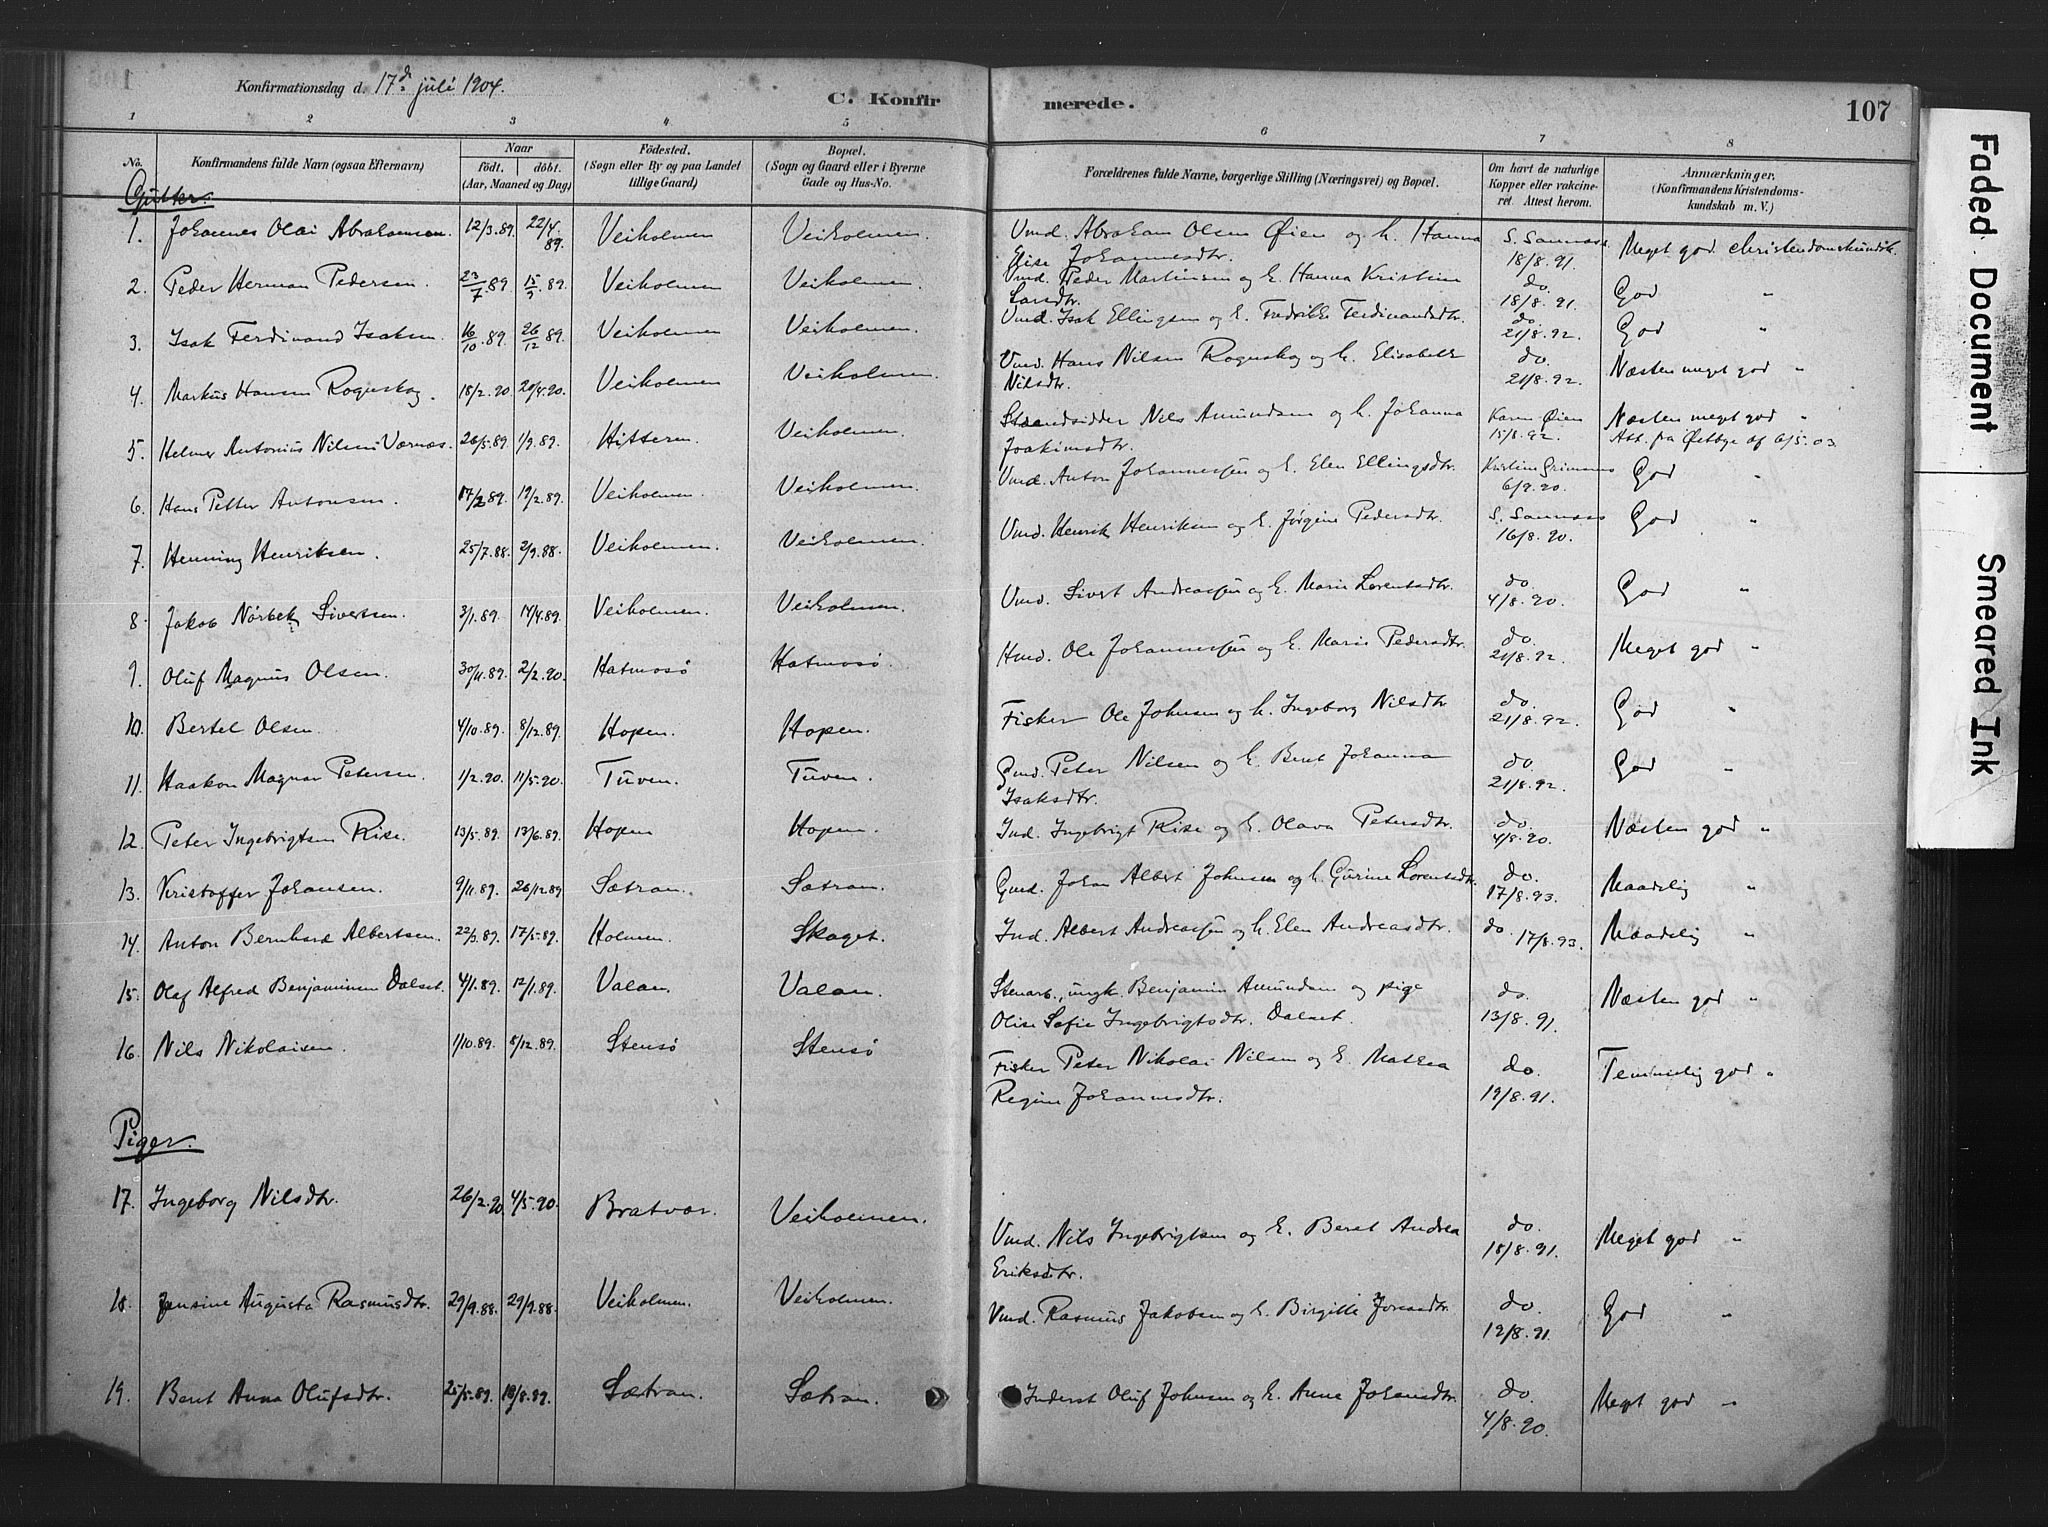 Konfirmationsdag d. 17de juli 1904.
C. Konfirmerede.
107
1 2 3 4 5 6 7 8
No. Konfirmandens fulde Navn (ogsaa Efternavn) Naar födt. döbt. (Aar, Maaned og Dag) Födested. (Sogn eller By og paa Landet tillige Gaard) Bopæl. (Sogn og Gaard eller i Byerne Gade og Hus-No. Forældrenes fulde Navne, borgerlige Stilling (Næringsvei) og Bopæl. Om havt de naturlige Kopper eller vakcineret. Attest herom. Anmærkninger. (Konfirmandens Kristendomskundskab m. V.)
Gutter.
1. Johannes Olai Abrahamsen. 12/3.89. 22/4.89. Veiholmen Veiholmen. Vmd. Abraham Olsen Øien og h. Hanna
Elise Johannesdtr. S. Sannæss 18/8.91. Meget god christendomskundsk.
2. Peder Herman Pedersen. 23/7.89 15/9.89. Veiholmen Veiholmen. Vmd. Peder Martinsen og h. Hanna Kristine
Larsdtr. do 18/8.91. God "
3. Isak Ferdinand Isaksen. 16/10.89. 26/12.89. Veiholmen Veiholmen. Vmd. Isak Ellingsen og h. Fredrikke Ferdinandsdtr. do. 21/8.92. God "
4. Markus Hansen Roguskog. 18/2.90 20/4.90. Veiholmen Veiholmen. Vmd. Hans Nilsen Roguskog og h. Elisabeth
Nilsdtr. do 21/8.92. Næsten meget god "
5. Helmer Antonius Nilsen Værnæs. 26/5.89. 1/9.89. Hitteren. Veiholmen. Strandsidder Nils Amundsen og h. Johanna
Joakimsdtr. Karen Øien 15/8.92. Næsten meget god "
Att. fra Østbye af 6/5.03.
6. Hans Petter Antonsen. 17/2.89. 19/2.89. Veiholmen. Veiholmen. Vmd. Anton Johannessen og h. Elen Ellingsdtr. Kristine Grimsnes 6/9.90. God "
7. Henning Henriksen. 25/7.88. 2/9.88. Veiholmen. Veiholmen. Vmd. Henrik Henriksen og h. Jørgine Pedersdtr. S. Sannæss 16/8.90. God "
8. Jakob Nørbek Sivertsen. 3/1.89. 17/4.89. Veiholmen. Veiholmen. Vmd. Sivert Andreassen og h. Marie Lorentsdtr. do 4/8.90. God "
9. Oluf Magnus Olsen. 30/11.89. 2/2.90. Hatmosø Hatmosø. Hmd. Ole Johannessen og h. Marie Pedersdtr. do. 21/8.92. Meget god "
10. Bertel Olsen. 4/10.89. 8/12.89. Hopen. Hopen. Fisker Ole Johnsen og h. Ingeborg Nilsdtr do. 21/8.92. God "
11. Haakon Magnar Petersen. 1/2.90. 11/5.90. Tuven. Tuven. Gmd. Peter Nilsen og h. Beret Johanna
Isaksdtr. do. 21/8.92. God "
12. Peter Ingebrigtsen Rise. 13/5.89. 13/6.89. Hopen Hopen. Ind. Ingebrigt Rise og h. Olava Petersdtr. do. 4/8.90. Næsten god "
13. Kristoffer Johansen. 9/11.89. 26/12.89 Sætran. Sætran. Gmd. Johan Albert Johnsen og h. Gurine Lorentsdtr. do. 17/8.93. Maadelig "
14. Anton Bernhard Albertsen. 22/3.89. 17/5.89. Holmen. Skaget. Ind. Albert Andreassen og h. Elen Andreasdtr. do. 17/8.93. Maadelig "
15. Olaf Alfred Benjaminsen Dalset. 4/1.89. 12/1.89. Valan. Valan. Stenarb., ungk. Benjamin Amundsen og pige
Olise Sofie Ingebrigtsdtr. Dalset. do. 13/8.91. Næsten god "
16. Nils Nikolaisen. 1/10.89. 8/12.89. Stensø Stensø Fisker Peter Nikolai Nilsen og h. Mathea
Regine Johannesdtr. do. 19/8.91. Temmelig god "
Piger.
17. Ingeborg Nilsdtr. 26/2.90 4/5.90. Bratvær. Veiholmen. Vmd. Nils Ingebrigtsen og h. Beret Andrea
Eriksdtr. do. 18/8.91. Meget god "
18. Jensine Augusta Rasmusdtr. 29/9.88. 29/9.88. Veiholmen. Veiholmen. Vmd. Rasmus Jakobsen og h. Birgitte Jonasdtr. do. 19/8.91. God "
19. Beret Anna Olufsdtr. 25/5.89. 18/8.89. Sætran. Sætran. Inderst Oluf Johnsen og h. Anne Johansdtr. do. 4/8.90. Meget god "
Faded Document
Smeared Ink